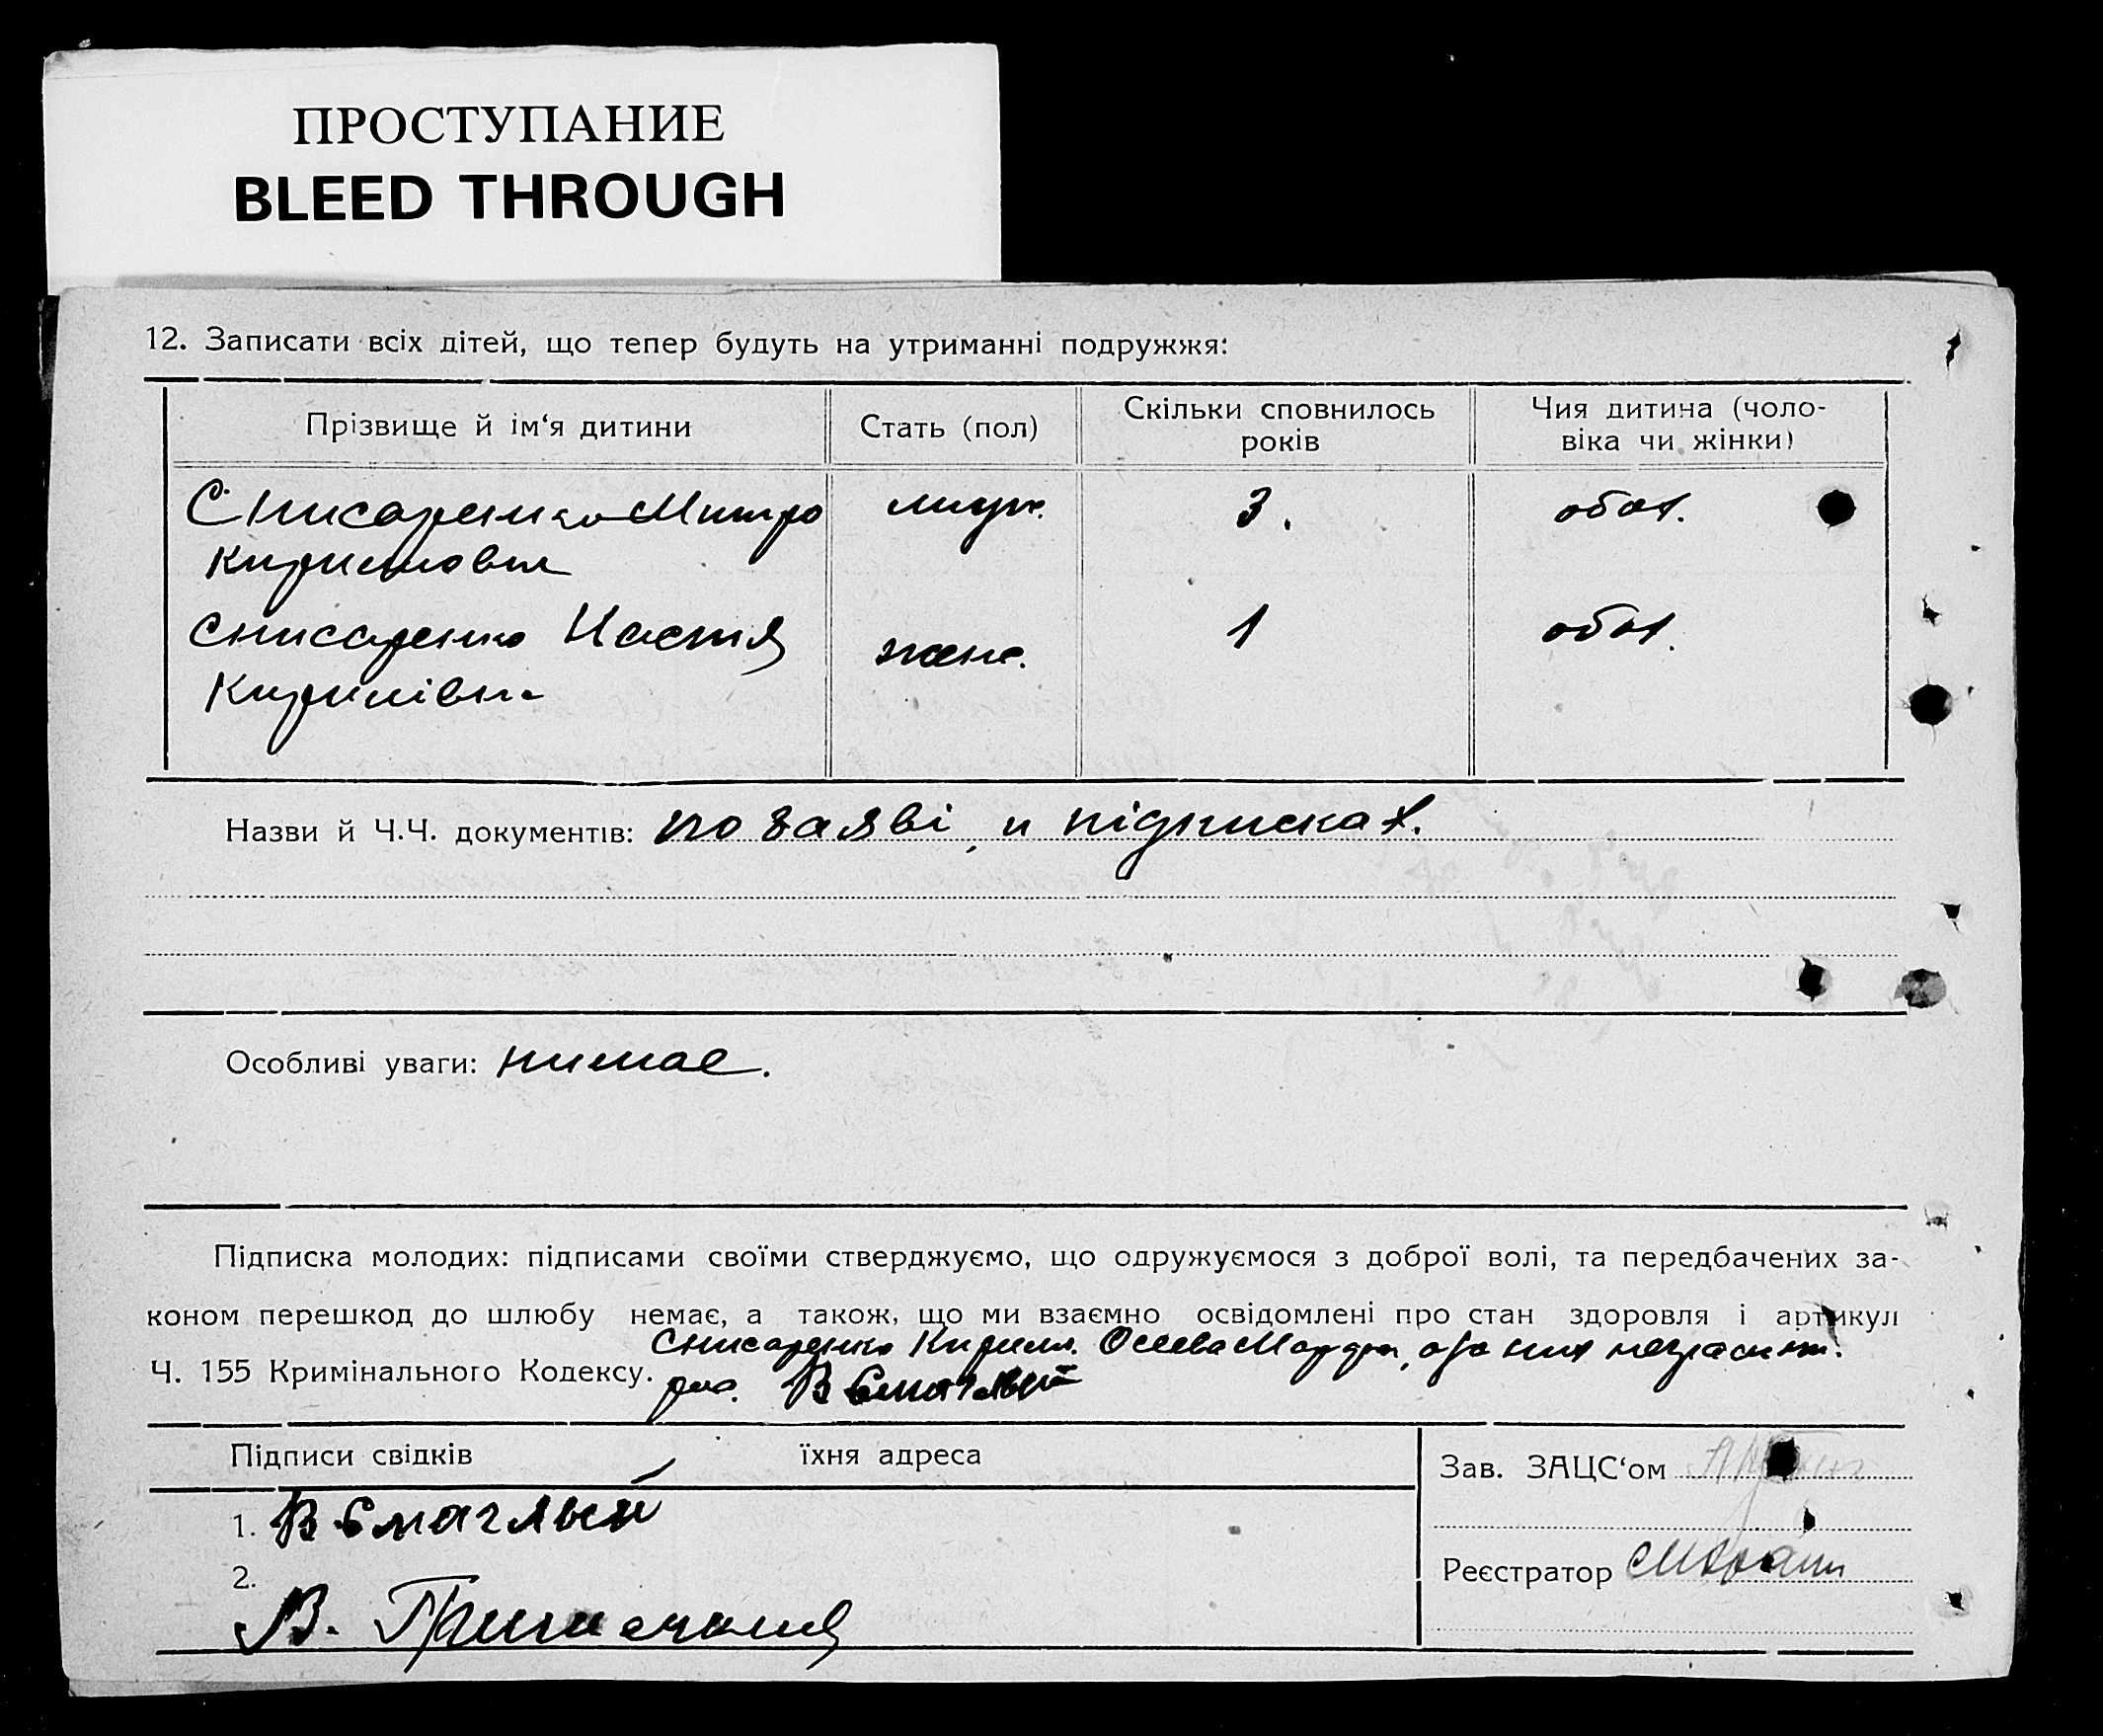 ПРОСТУПАНИЕ
BLEED THROUGH
12. Записати всіх дітей, що тепер будуть на утриманні подружжя:
Прізвище й ім‘я дитини
Стать (пол)
Скільки сповнилось
років
Чия дитина (чоло-
віка чи жінки)
Снисаренко Митро
муж.
3.
обох.
Кирилович
Снисаренко Настя
жен.
1
обох.
Кирилівна
Назви й Ч.Ч. документів: по заяві, и підписках.
Особливі уваги: нимае.
Підписка молодих: підписами своїми стверджуємо, що одружуємося з доброї волі, та передбачених за-
коном перешкод до шлюбу немає, а також, що ми взаємно освідомлені про стан здоровля і артикул
Снисаренко Кирилл.
Ч. 155 Кримінального Кодексу.
Підписи свідків
їхня адреса
Зав. ЗАЦС‘ом
1.
2.
В.
Реєстратор